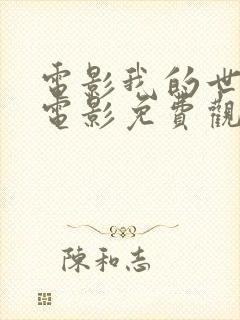 電影我的世
電影免費觀
陳和志